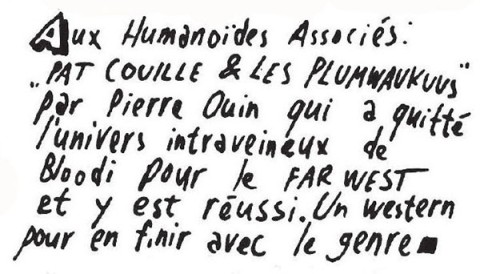 Aux Humanoïdes Associés:
"PAT COUILLE & LES PLUMWAUKUUS"
par Pierre Ouin qui a quitté
l'univers intraveineux de
Bloodi pour le FAR WEST
et y est réussi. Un western
pour en finir avec le genre